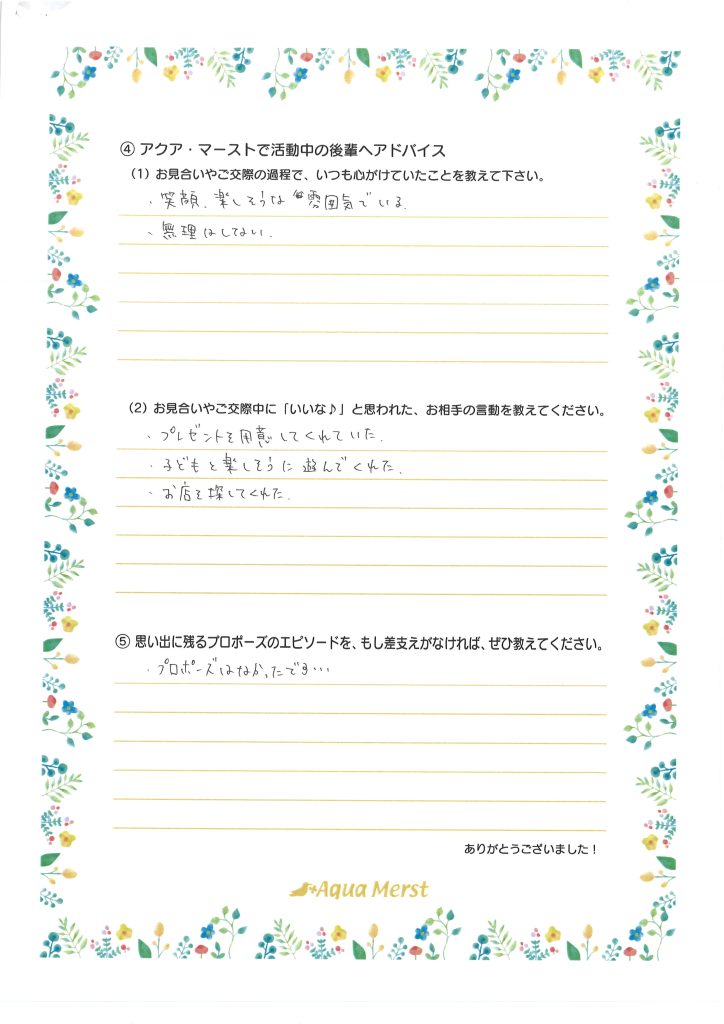 ④ アクア・マーストで活動中の後輩へアドバイス
（1）お見合いやご交際の過程で、いつも心がけていたことを教えて下さい。
・笑顔、楽しそうな雰囲気でいる。
・無理はしてない。
（2）お見合いやご交際中に「いいな♪」と思われた、お相手の言動を教えてください。
・プレゼントを用意してくれていた。
・子どもと楽しそうに遊んでくれた。
・お店を探してくれた。
⑤ 思い出に残るプロポーズのエピソードを、もし差支えがなければ、ぜひ教えてください。
・プロポーズはなかったです…
ありがとうございました！
Aqua Merst